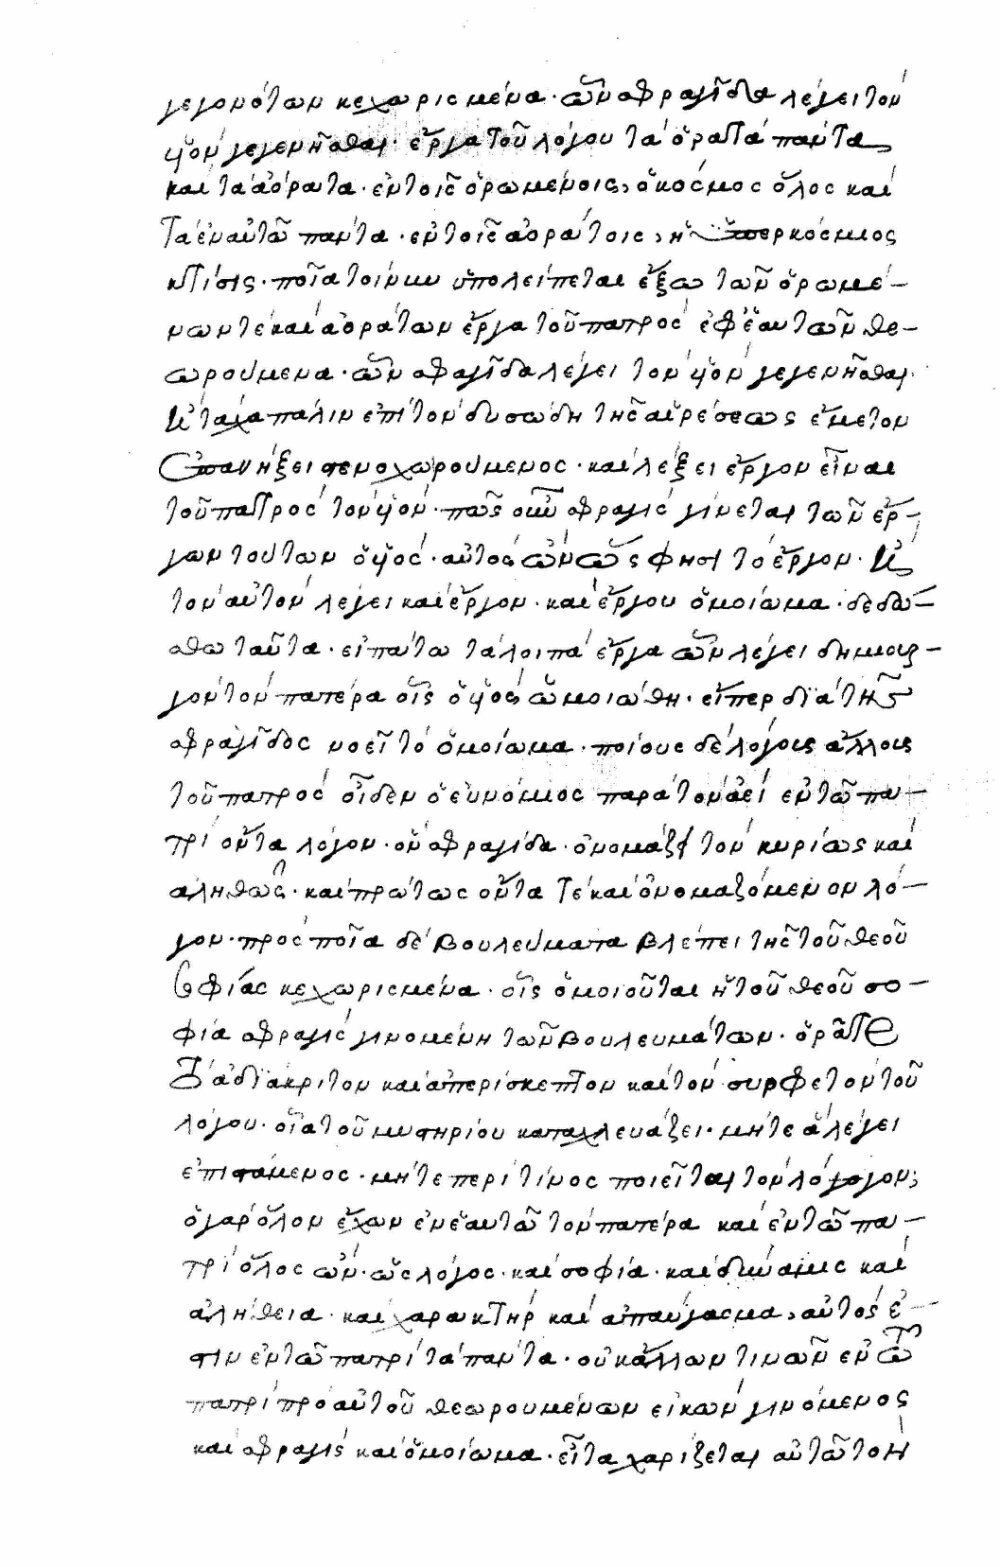 γεγονότων κεχωρισμένα· ὧν σφραγῖδα λέγει τὸν
υἱὸν γεγενῆσθαι· ἔργα τοῦ λόγου τὰ ὁρατὰ πάντα
καὶ τὰ ἀόρατα· ἐν τοῖς ὁρωμένοις, ὁ κόσμος ὅλος καὶ
τὰ ἐν αὐτῶ πάντα· ἐν τοῖς ἀοράτοις, ἡ ὑπερκόσμιος
κτίσις· ποῖα τοίνυν ὑπολείπεται ἔξω τῶν ὁρωμέ-
νων τὲ καὶ ἀοράτων ἔργα τοῦ πατρὸς ἐφ' ἑαυτῶν θε-
ωρούμενα· ὧν σφραγῖδα λέγει τὸν υἱὸν γεγενῆσθαι·
ἢ τάχα πάλιν ἐπὶ τὸν δυσώδη τῆς αἱρέσεως ἔμετον
ἐπανήξει στενοχωρούμενος· καὶ λέξει ἔργον εἶναι
τοῦ πατρὸς τὸν υἱόν· πῶς οὖν σφραγὶς γίνεται τῶν ἔρ-
γων τούτων ὁ υἱός· αὐτὸς ὢν ὥς φησι τὸ ἔργον· ἢ
τὸν αὐτὸν λέγει καὶ ἔργον· καὶ ἔργου ὁμοίωμα· δεδό-
σθω ταῦτα· εἰπάτω τὰ λοιπὰ ἔργα ὧν λέγει δημιουρ-
γὸν τὸν πατέρα οἷς ὁ υἱὸς ὡμοιώθη· εἴπερ διὰ τῆς
σφραγῖδος νοεῖ τὸ ὁμοίωμα· ποίους δὲ λόγους ἄλλους
τοῦ πατρὸς οἶδεν ὁ εὐνόμιος παρὰ τὸν ἀεὶ ἐν τῶ πα-
τρὶ ὄντα λόγον· ὃν σφραγίδα· ὀνομάζει τὸν κυρίως καὶ
ἀληθῶς· καὶ πρώτως ὄντα τὲ καὶ ὀνομαζόμενον λό-
γον· πρὸς ποῖα δὲ βουλεύματα βλέπει τῆς τοῦ θεοῦ
σοφίας κεχωρισμένα· οἷς ὁμοιοῦται ἡ τοῦ θεοῦ σο-
φία σφραγὶς γινομένη τῶν βουλευμάτων· ὁρᾶτε
τὸ ἀδιάκριτον καὶ ἀπερίσκεπτον καὶ τὸν συρφετὸν τοῦ
λόγου· οἷα τοῦ μυστηρίου καταχλευάζει· μήτε ἃ λέγει
ἐπιστάμενος· μήτε περὶ τίνος ποιεῖται τὸν λόγογον;
ὁ γὰρ ὅλον ἔχων ἐν ἑαυτῶ τὸν πατέρα καὶ ἐν τῶ πα-
τρὶ ὅλος ὢν· ὡς λόγος· καὶ σοφία· καὶ δύναμις καὶ
ἀλήθεια· καὶ χαρακτὴρ καὶ ἀπαύγασμα, αὐτός ἐ-
στιν ἐν τῶ πατρὶ τὰ πάντα· οὐκ ἄλλων τινῶν ἐν τῶ
πατρὶ πρὸ αὐτοῦ θεωρουμένων εἰκὼν γινόμενος
καὶ σφραγὶς καὶ ὁμοίωμα· εἶτα χαρίζεται αὐτῶ τὸν